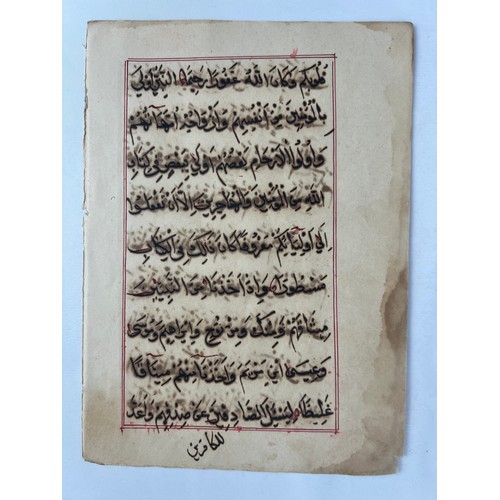 قُلُوبُكُمْ وَكَانَ اللَّهُ غَفُورًا رَحِيمًا النَّبِيُّ أَوْلَى
بِالْمُؤْمِنِينَ مِنْ أَنْفُسِهِمْ وَأَزْوَاجُهُ أُمَّهَاتُهُمْ
وَأُولُوا الْأَرْحَامِ بَعْضُهُمْ أَوْلَى بِبَعْضٍ فِي كِتَابِ
اللَّهِ مِنَ الْمُؤْمِنِينَ وَالْمُهَاجِرِينَ إِلَّا أَنْ تَفْعَلُوا
إِلَى أَوْلِيَائِكُمْ مَعْرُوفًا كَانَ ذَلِكَ فِي الْكِتَابِ
مَسْطُورًا وَإِذْ أَخَذْنَا مِنَ النَّبِيِّينَ
مِيثَاقَهُمْ وَمِنْكَ وَمِنْ نُوحٍ وَإِبْرَاهِيمَ وَمُوسَى
وَعِيسَى ابْنِ مَرْيَمَ وَأَخَذْنَا مِنْهُمْ مِيثَاقًا
غَلِيظًا لِيَسْئَلَ الصَّادِقِينَ عَنْ صِدْقِهِمْ وَأَعَدَّ
للكافرين